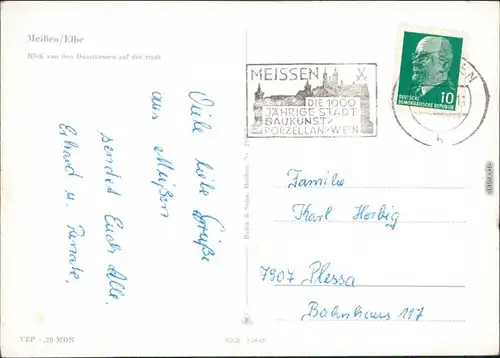 Meißen/Elbe
Blick von den Domtürmen auf die Stadt
Viele liebe Grüße
aus Meißen
sendet Euch Alle.
Erhard u. Renate.
VEP -,20 MDN
MEISSEN
DIE 1000
JÄHRIGE STADT
BAUKUNST
PORZELLAN WEIN
10
DEUTSCHE
DEMOKRATISCHE REPUBLIK
h
Familie
Karl Herbig
7907 Plessa
Bahnhaus 117